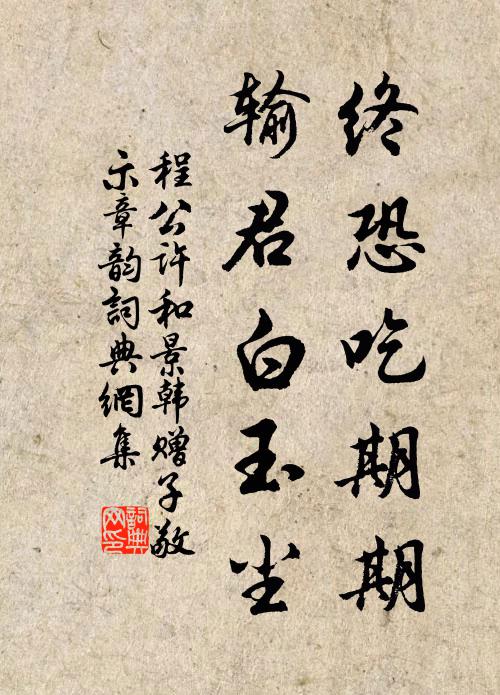 终恐吃期期
输君白玉尘
程公许和景韩赠子敬
示章韵詞典網集
詞典网印